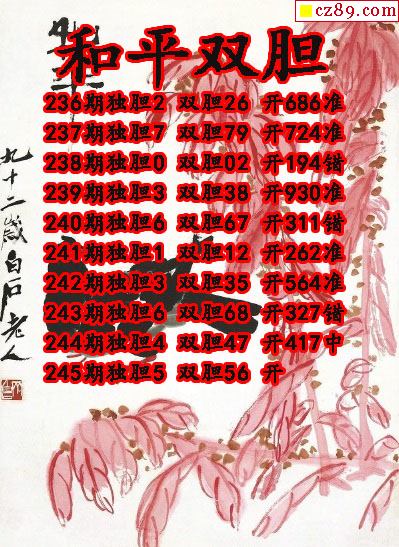 cz89.com
和平双胆
236期独胆2 双胆26 开686准
237期独胆7 双胆79 开724准
238期独胆0 双胆02 开194错
239期独胆3 双胆38 开930准
240期独胆6 双胆67 开311错
241期独胆1 双胆12 开262准
242期独胆3 双胆35 开564准
243期独胆6 双胆68 开327错
244期独胆4 双胆47 开417中
245期独胆5 双胆56 开
九十二岁白石老人